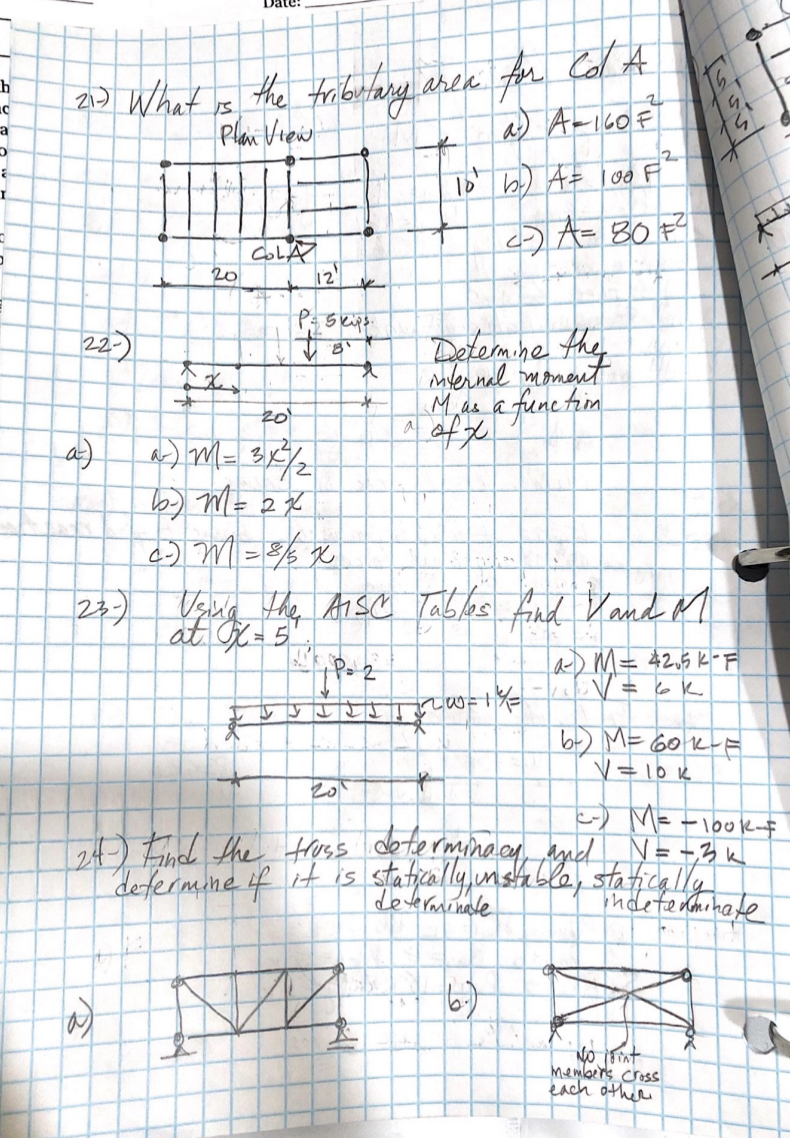 Date:
21-) What is the tributary area for Col A
Plan View
a-) A=160 F²
10'
b-) A= 100 F²
c-) A= 80 F²
Col A
20
12'
22-)
P=5 kips
8'
x
20'
Determine the
internal moment
M as a function
of x
a-)
a-) M= 3x²/2
b-) M= 2 x
c-) M = 8/5 x
23-) Using the AISC Tables find V and M
at x=5'
P=2
w=1 k/F
20'
a-) M= 42.5 K-F
V = 6 K
b-) M= 60 K-F
V = 10 K
c-) M= -100 K-F
V = -3 K
24-) Find the truss determinacy and
determine if it is statically, unstable, statically
determinate
indeterminate
a)
b-)
No joint
members cross
each other